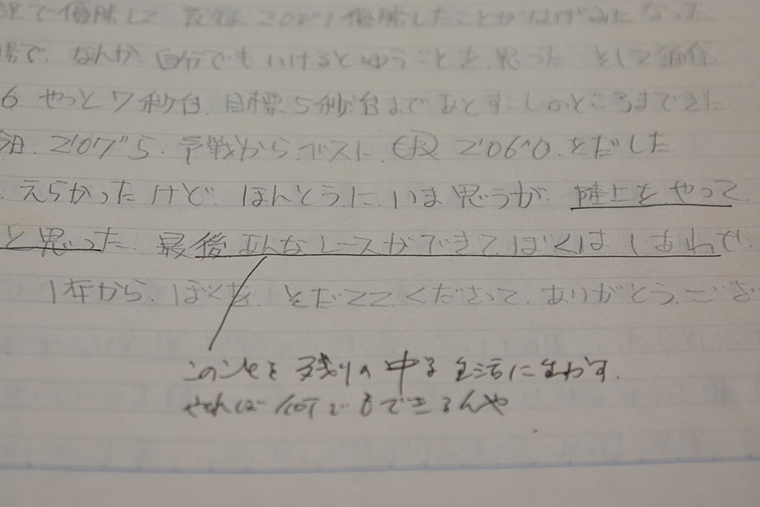 で優勝して 2'08"1優勝したことがはげみになった
場で、なんか自分でもいけるとゆうことを思った。そして
6. やっと7秒台。目標、5秒台まであとすこしのところまできた
今日. 2'07"5. 予戦からベスト. 決 2'06"0. をだした
. えらかったけど、ほんとうに、いま思うが、陸上をやって
と思った 最後あんなレースができてぼくはしあわせで
1年から、ぼくを そだててくださって、ありがとうござ
このことを残りの中3生活に生かす.
やれば何でもできるんや